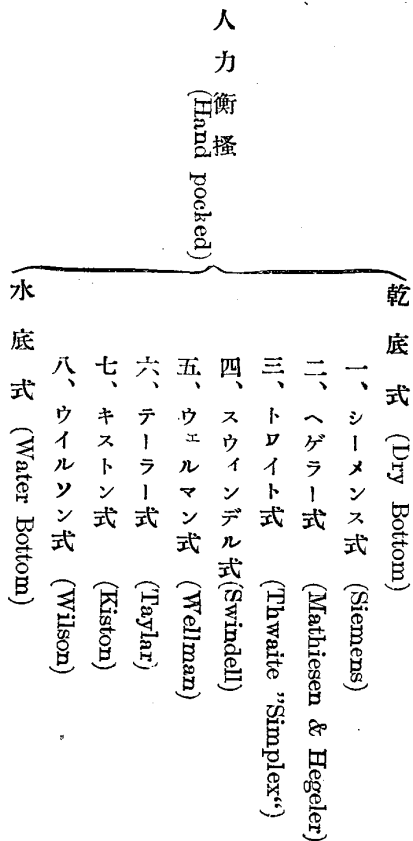 人力衝搔 (Hand pocked)
乾底式 (Dry Bottom)
一、シーメンス式 (Siemens)
二、ヘゲラー式 (Mathiesen & Hegeler)
三、トロイト式 (Thwaite ”Simplex“)
四、スウィンデル式 (Swindell)
五、ウェルマン式 (Wellman)
六、テーラー式 (Taylar)
七、キストン式 (Kiston)
八、ウイルソン式 (Wilson)
水底式 (Water Bottom)